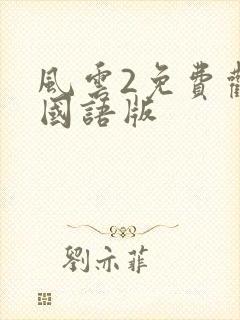 風雲2免費
國語版
劉亦菲